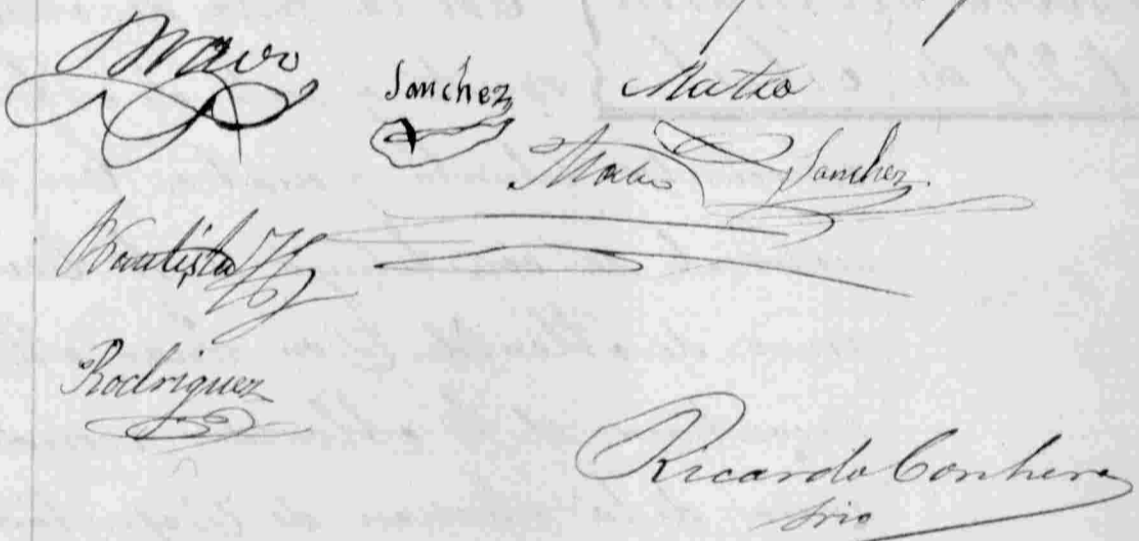 Bravo
Sanchez Mateo
Mateo Sanchez
Bautista
Rodriguez
Ricardo
Srio